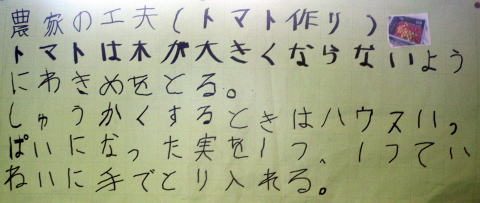 農家の工夫(トマト作り)
トマトは木が大きくならないよう
にわきめをとる。
しゅうかくするときはハウスいっ
ぱいになった実を1つ、1つてい
ねいに手でとり入れる。